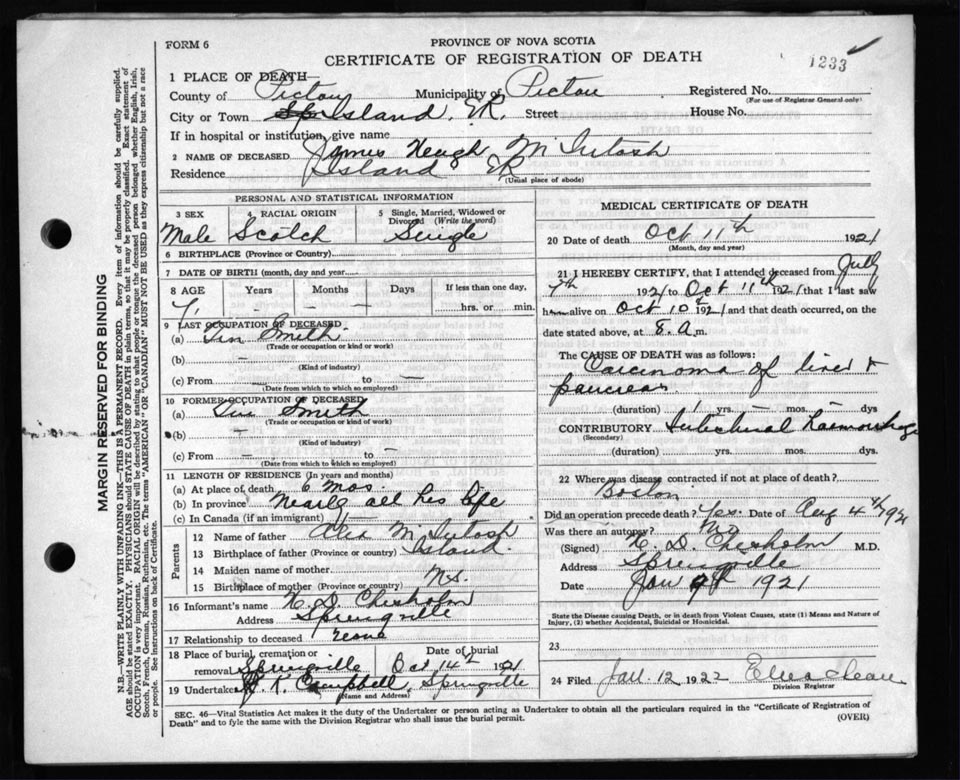 FORM 6
PROVINCE OF NOVA SCOTIA
CERTIFICATE OF REGISTRATION OF DEATH
1233
1 PLACE OF DEATH—
County of Pictou Municipality of Pictou Registered No.
(For use of Registrar General only)
City or Town Island, E.R. Street House No.
If in hospital or institution, give name
2 NAME OF DECEASED James Heugh McIntosh
Residence Island E.R.
(Usual place of abode)
PERSONAL AND STATISTICAL INFORMATION
3 SEX 4 RACIAL ORIGIN 5 Single, Married, Widowed or Divorced (Write the word)
Male Scotch Single
6 BIRTHPLACE (Province or Country)
7 DATE OF BIRTH (month, day and year)
8 AGE Years Months Days If less than one day,
— — — hrs. or min.
9 LAST OCCUPATION OF DECEASED
(a) Tin Smith
(Trade or occupation or kind or work)
(b) —
(Kind of industry)
(c) From — to —
(Date from which to which so employed)
10 FORMER OCCUPATION OF DECEASED
(a) Tin Smith
(Trade or occupation or kind or work)
(b) —
(Kind of industry)
(c) From — to —
(Date from which to which so employed)
11 LENGTH OF RESIDENCE (In years and months)
(a) At place of death 6 mos.
(b) In province Nearly all his life
(c) In Canada (if an immigrant) —
Parents
12 Name of father Alex McIntosh
13 Birthplace of father (Province or country) Island.
14 Maiden name of mother
15 Birthplace of mother (Province or country) N.S.
16 Informant's name H. D. Chisholm
Address Springville
17 Relationship to deceased none
18 Place of burial, cremation or removal Springville Date of burial Oct 14th 1921
19 Undertaker K. Campbell, Springville
(Name and Address)
MEDICAL CERTIFICATE OF DEATH
20 Date of death Oct 11th 1921
(Month, day and year)
21 I HEREBY CERTIFY, that I attended deceased from July
7th 1921 to Oct 11th 1921 that I last saw
h alive on Oct 10th 1921 and that death occurred, on the
date stated above, at 8 a.m.
The CAUSE OF DEATH was as follows:
Carcinoma of liver &
pancreas
(duration) 1 yrs. — mos. — dys
CONTRIBUTORY Intestinal haemorrhage
(Secondary)
(duration) yrs. mos. dys.
22 Where was disease contracted if not at place of death?
Boston
Did an operation precede death? Yes. Date of Aug 4th 1921
Was there an autopsy? No
(Signed) H. D. Chisholm M.D.
Address Springville
Date Jan 1921
State the Disease causing Death, or in death from Violent Causes, state (1) Means and Nature of Injury, (2) whether Accidental, Suicidal or Homicidal.
23
24 Filed Jan. 12 1922
Division Registrar
SEC. 46—Vital Statistics Act makes it the duty of the Undertaker or person acting as Undertaker to obtain all the particulars required in the "Certificate of Registration of
Death" and to fyle the same with the Division Registrar who shall issue the burial permit.
(OVER)
MARGIN RESERVED FOR BINDING
N.B.—WRITE PLAINLY WITH UNFADING INK—THIS IS A PERMANENT RECORD. Every item of information should be carefully supplied.
AGE should be stated EXACTLY. PHYSICIANS should STATE CAUSE OF DEATH in plain terms, so that it may be properly classified. Exact statement of
OCCUPATION is very important. RACIAL ORIGIN will be described by stating to what people or tongue the deceased person belonged whether English, Irish,
Scotch, French, German, Russian, Ruthenian, etc. The terms "AMERICAN" OR "CANADIAN" MUST NOT BE USED as they express citizenship but not a race
or people. See instructions on back of Certificate.